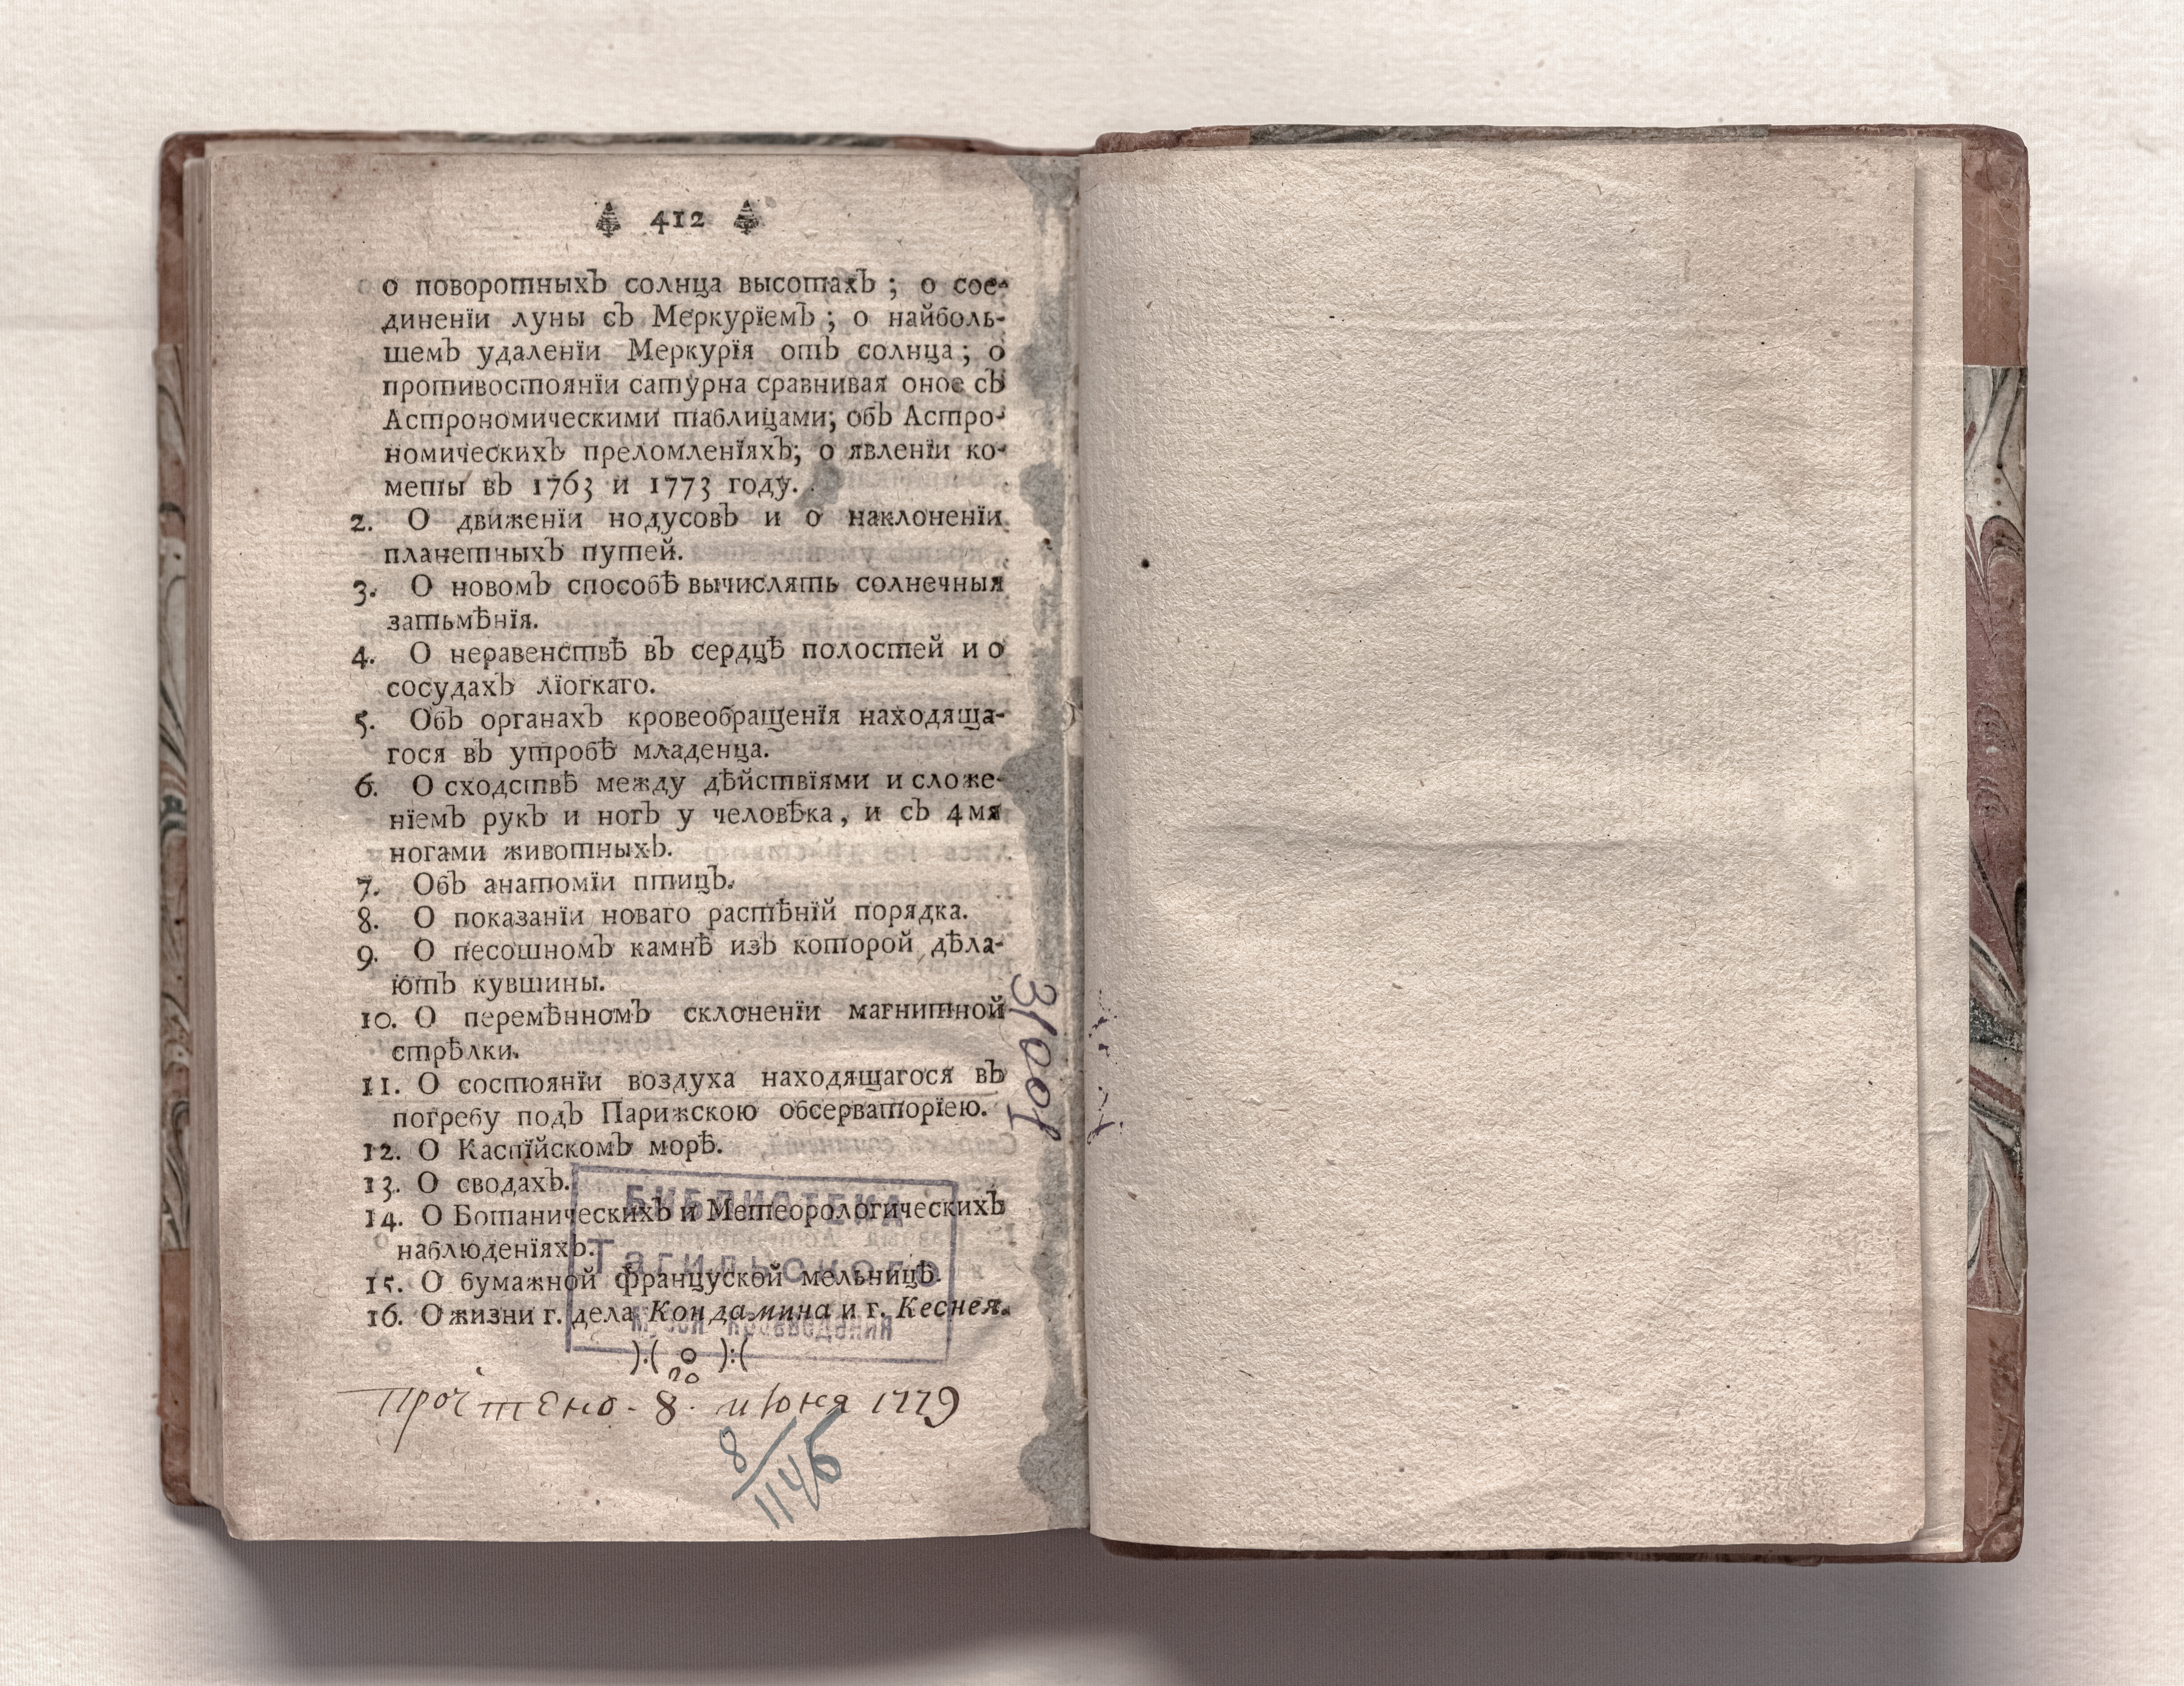 412
о поворотныхъ солнца высотахъ ; о сое-
диненїи луны съ Меркурїемъ ; о найболь-
шемъ удаленїи Меркурїя отъ солнца ; о
противостоянїи сатурна сравнивая оное съ
Астрономическими таблицами; объ Астро-
номическихъ преломленїяхъ; о явленїи ко-
меты въ 1763 и 1773 году.
2. О движенїи нодусовъ и о наклоненїи
планетныхъ путей.
3. О новомъ способѣ вычислять солнечныя
затьмѣнїя.
4. О неравенствѣ въ сердцѣ полостей и о
сосудахъ лїогкаго.
5. Объ органахъ кровеобращенїя находяща-
гося въ утробѣ младенца.
6. О сходствѣ между дѣйствїями и сложе-
нїемъ рукъ и ногъ у человѣка, и съ 4мя
ногами животныхъ.
7. Объ анатомїи птицъ.
8. О показанїи новаго растѣнїй порядка.
9. О песошномъ камнѣ изъ которой дѣла-
ютъ кувшины.
10. О перемѣнномъ склоненїи магнитной
стрѣлки.
11. О состоянїи воздуха находящагося въ
погребу подъ Парижскою обсерваторїею.
12. О Каспїйскомъ морѣ.
13. О сводахъ.
14. О Ботаническихъ и Метеорологическихъ
наблюденїяхъ.
15. О бумажной француской мельницѣ.
16. О жизни г. дела Кондамина и г. Кеснея.
):( o ):(
БИБЛИОТЕКА
Тагильского
Прочтено - 8 го июня 1779
8/1145
31001